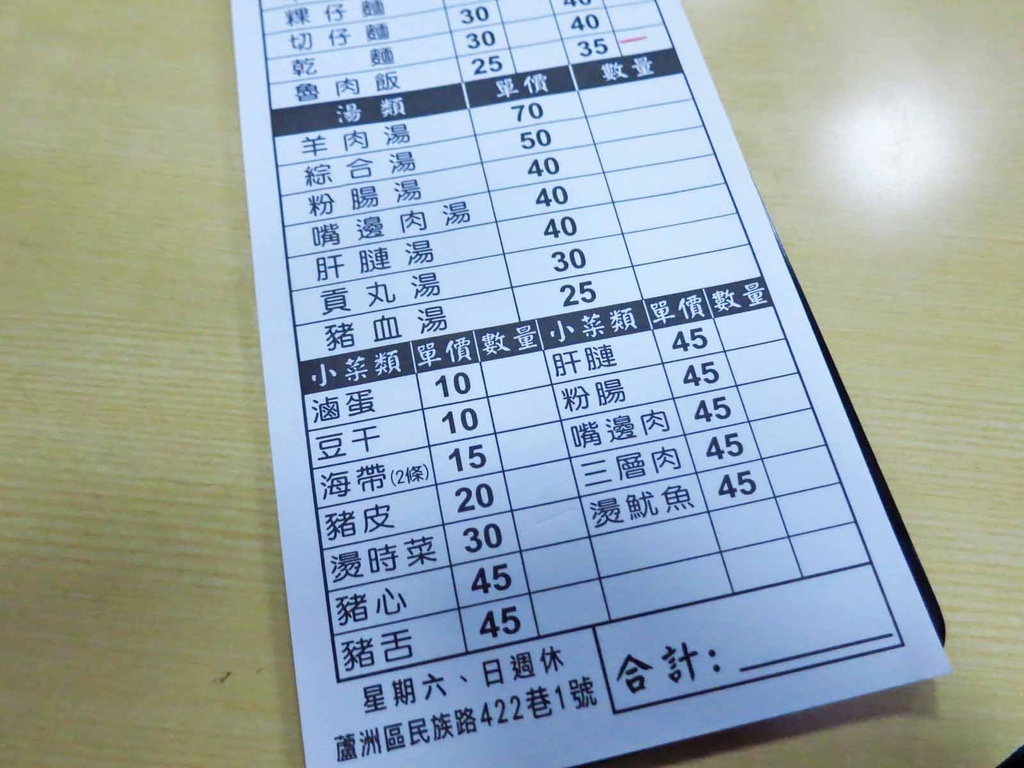 粿仔麵
切仔麵 30 40
乾麵 30 40
魯肉飯 25 35
湯類 單價 數量
羊肉湯 70
綜合湯 50
粉腸湯 40
嘴邊肉湯 40
肝𦟪湯 40
貢丸湯 30
豬血湯 25
小菜類 單價 數量 小菜類 單價 數量
滷蛋 10 肝𦟪 45
豆干 10 粉腸 45
海帶(2條) 15 嘴邊肉 45
豬皮 20 三層肉 45
燙時菜 30 燙魷魚 45
豬心 45
豬舌 45
星期六、日週休
蘆洲區民族路422巷1號
合計: